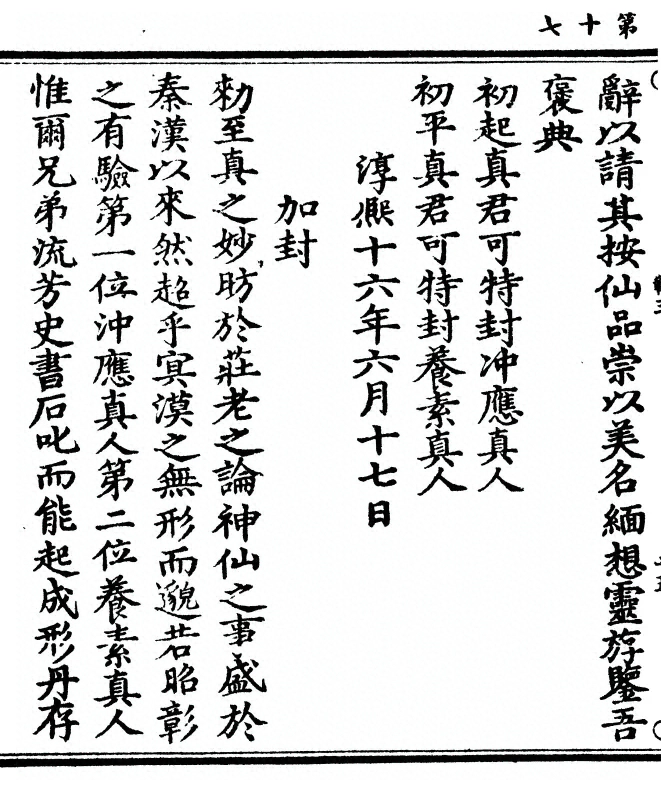 第十七
辭以請其按仙品崇以美名緬想靈斿鑒吾
褒典
初起真君可特封冲應真人
初平真君可特封養素真人
淳熙十六年六月十七日
加封
勑至真之妙昉於莊老之論神仙之事盛於
秦漢以來然超乎㝠漠之無形而邈若昭彰
之有驗第一位沖應真人第二位養素真人
惟爾兄弟流芳史書石叱而能起成形丹存